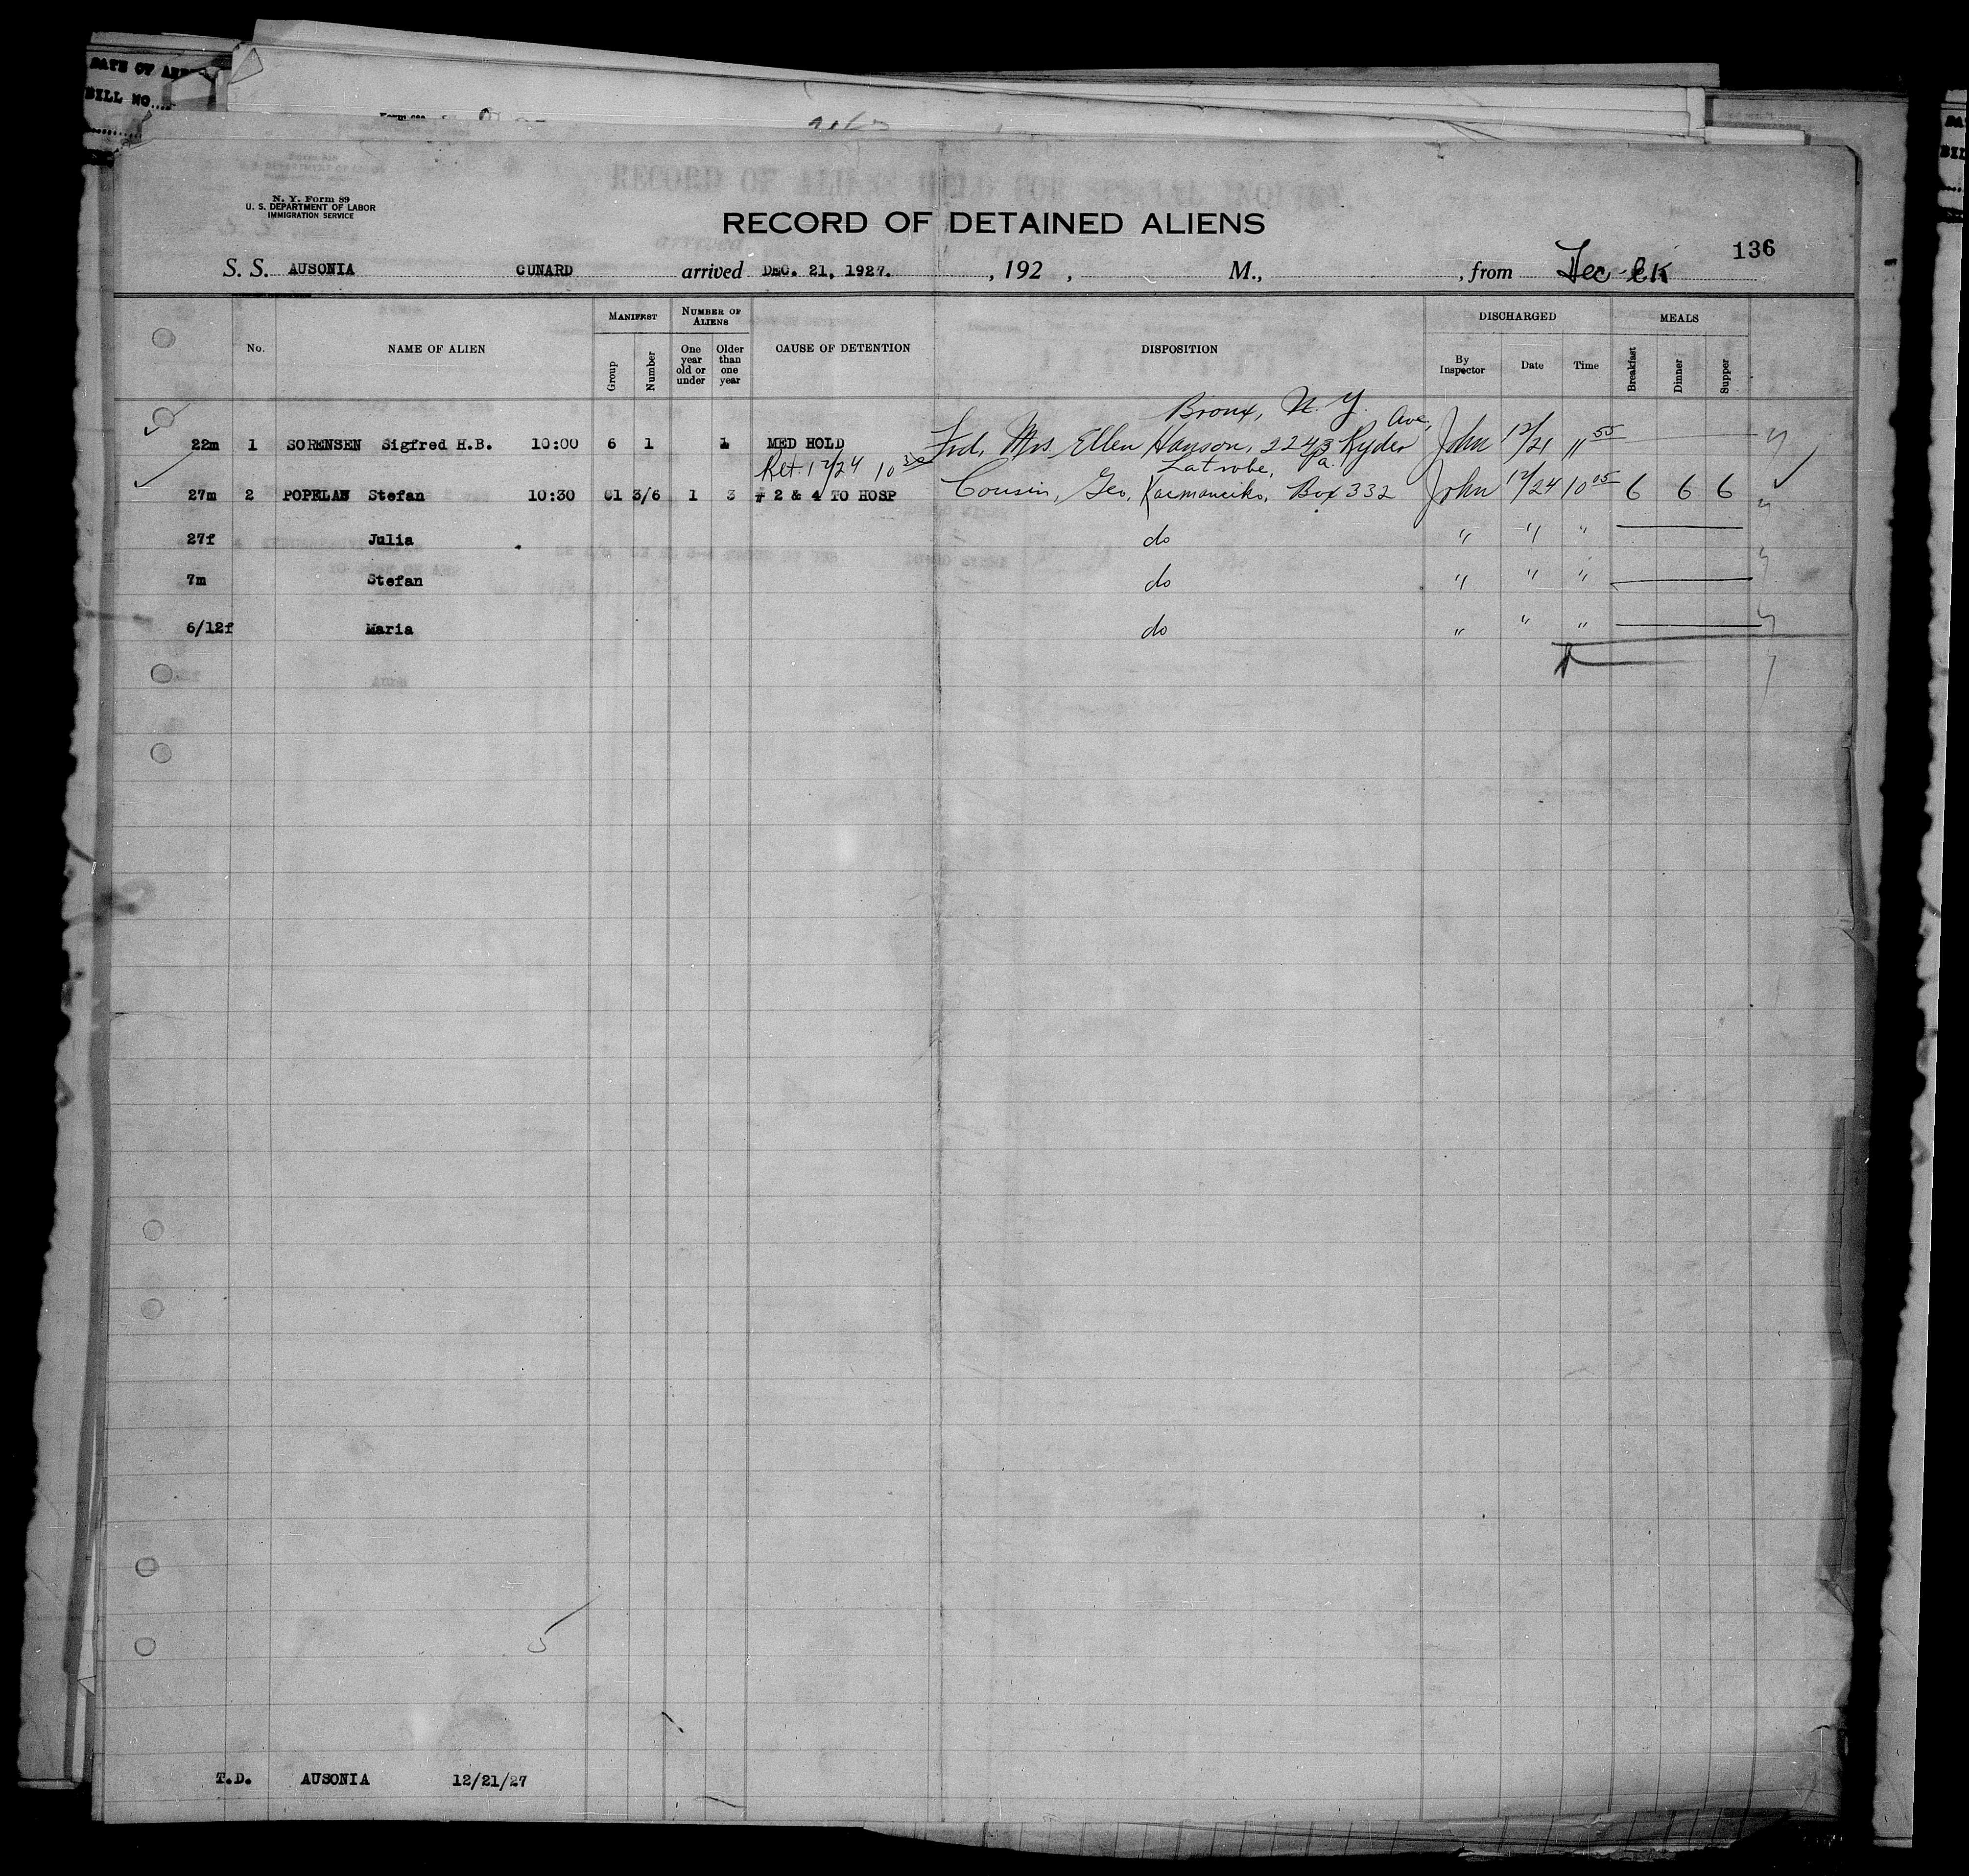 DATE OF
BILL NO....
N. Y. Form 89
U. S. DEPARTMENT OF LABOR
IMMIGRATION SERVICE
RECORD OF ALIENS HELD FOR SPECIAL INQUIRY
RECORD OF DETAINED ALIENS
136
S. S. AUSONIA CUNARD arrived DEC. 21, 1927. , 192 , M., , from
No. NAME OF ALIEN MANIFEST Group Number NUMBER OF ALIENS One year old or under Older than one year CAUSE OF DETENTION DISPOSITION DISCHARGED By Inspector Date Time MEALS Breakfast Dinner Supper
Bronx, N. Y.
22m 1 SORENSEN Sigfred H.B. 10:00 6 1 1 MED HOLD Frd, Mrs Ellen Hanson, 2243 Ryder Ave, John 12/21 11 55
Ret 12/24 10 30 Latrobe, Pa.
27m 2 POPELAN Stefan 10:30 61 3/6 1 3 # 2 & 4 TO HOSP Cousin, Geo, Box 332 John 12/24 10 05 6 6 6
27f Julia do " " "
7m Stefan do " " "
6/12f Maria do " " "
5
T.D. AUSONIA 12/21/27